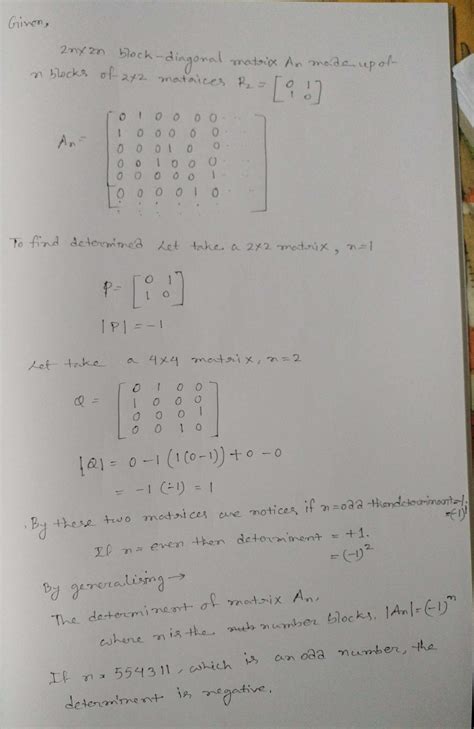 Given,
2n×2n block-diagonal matrix An made up of
n blocks of 2×2 mataices R2 = [0 1
1 0]
An = [0 1 0 0 0 0 . . .
1 0 0 0 0 0 . . .
0 0 0 1 0 0
0 0 1 0 0 0
0 0 0 0 0 1
0 0 0 0 1 0 . . .
. . . . . .]
To find determined Let take a 2×2 matrix, n=1
P = [0 1
1 0]
|P| = -1
Let take a 4×4 matrix, n=2
Q = [0 1 0 0
1 0 0 0
0 0 0 1
0 0 1 0]
|Q| = 0-1(1(0-1))+0-0
= -1(-1) = 1
By these two matrices are notices if n=odd then determinant
=(-1)
If n= even then determinent = +1.
= (-1)²
By generalising →
The determinent of matrix An,
where n is the number blocks. |An|=(-1)ⁿ
If n = 554311, which is an odd number, the
determinent is negative.